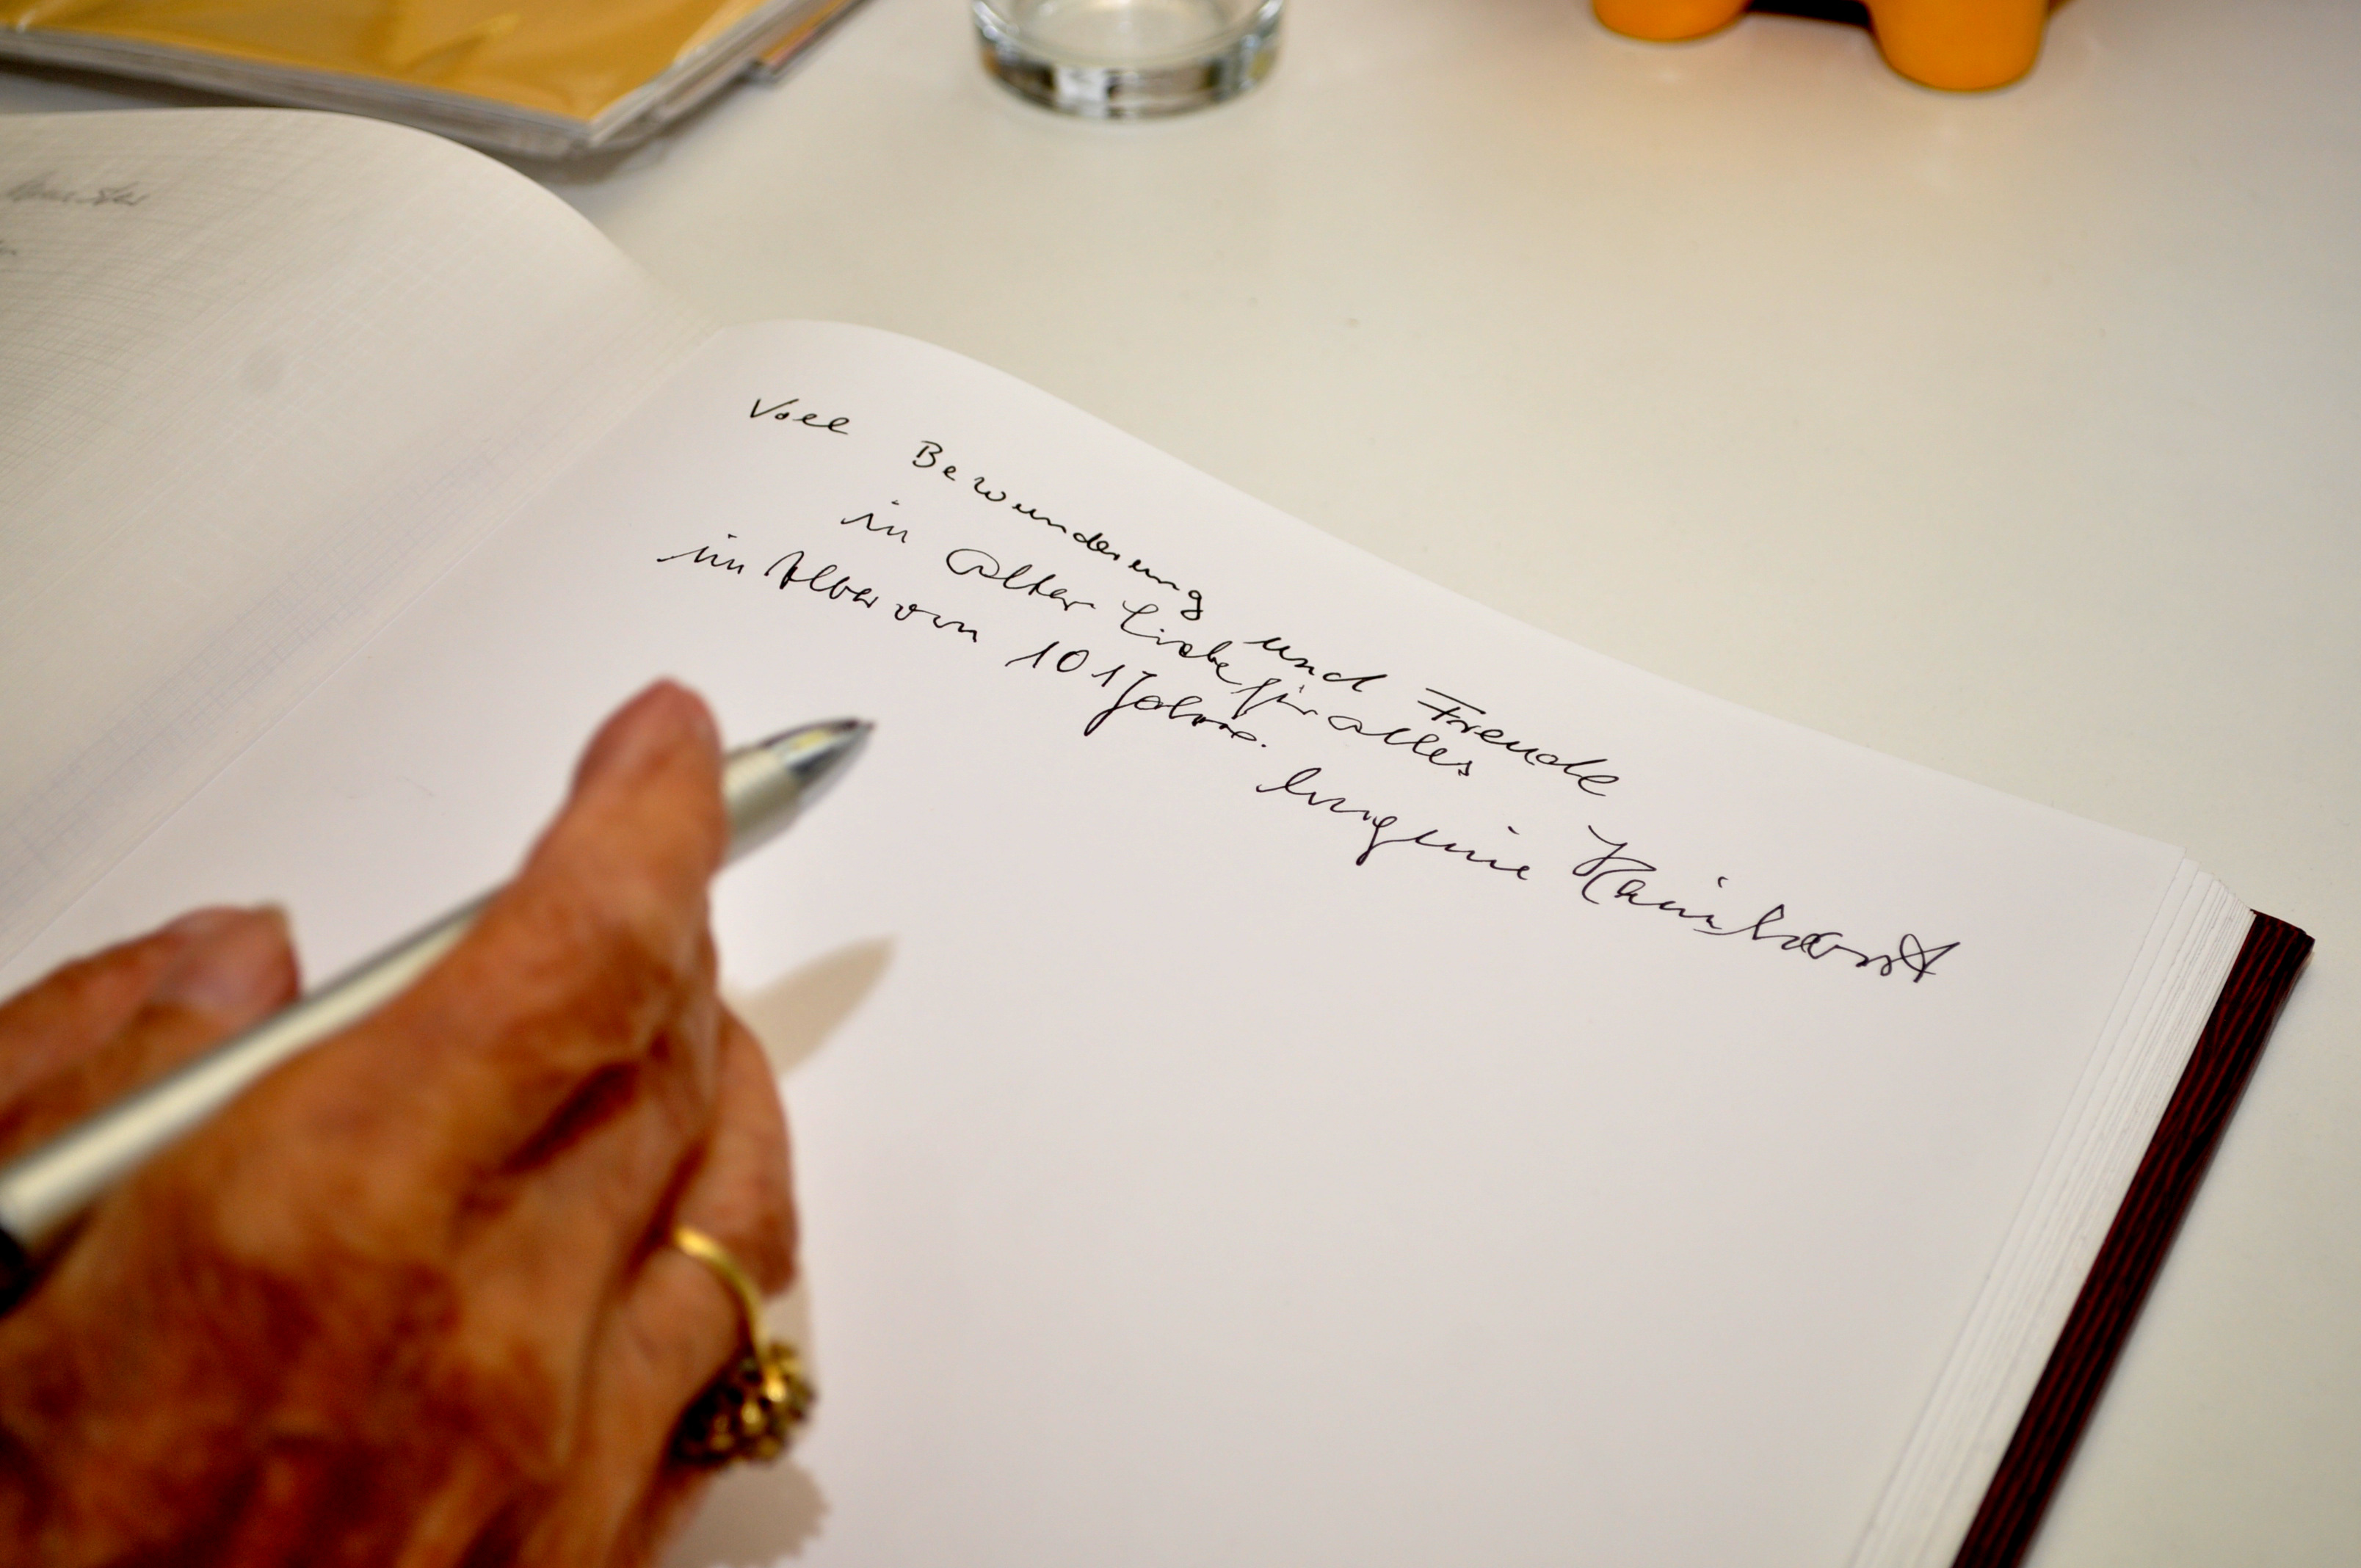 Voll Bewunderung und Freude
in alter Liebe für alles
im Alter von 101 Jahre.